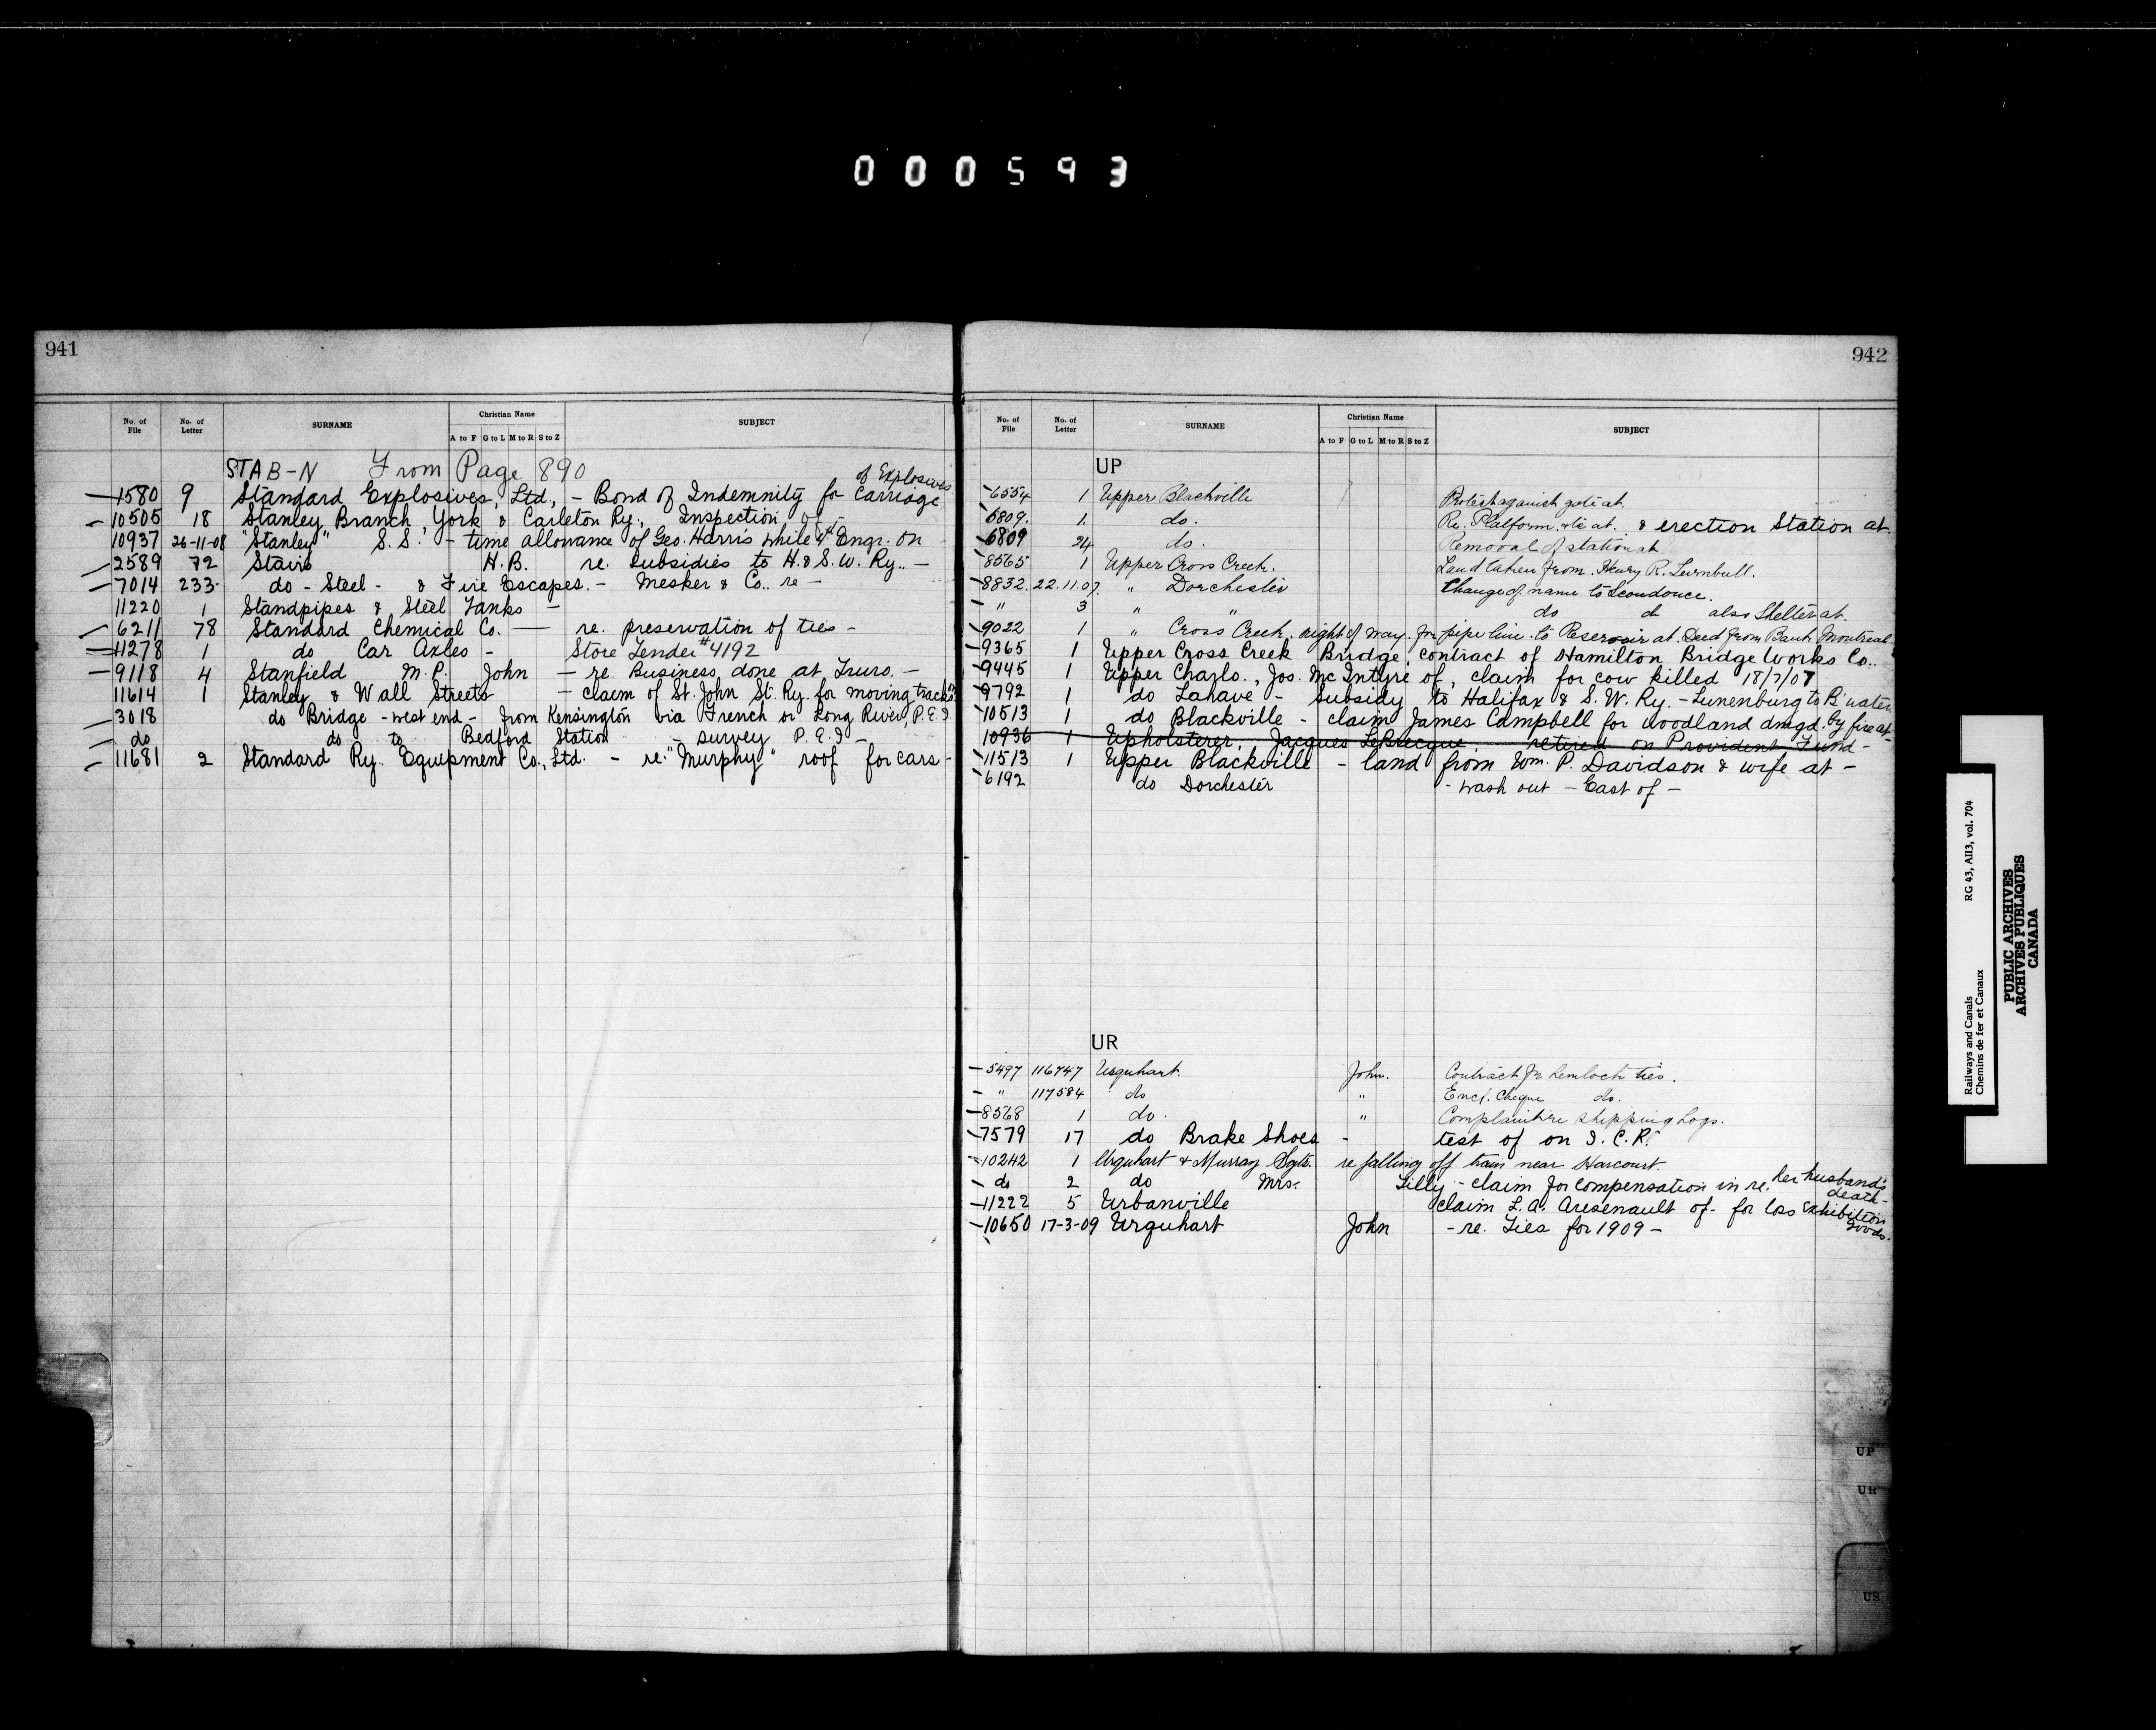 000593
941
No. of File No. of Letter SURNAME Christian Name SUBJECT
A to F G to L M to R S to Z
STAB-N From Page 890
of Explosives
1580 9 Standard Explosives, Ltd, - Bond of Indemnity for Carriage
10505 18 Stanley Branch, York & Carleton Ry., Inspection of -
10937 26-11-08 "Stanley" S.S. - time allowance of Geo. Harris while Engr. on
2589 72 Stairs H.B. re. subsidies to H. & S.W. Ry.. -
7014 233. do - Steel - & Fire Escapes. - Mesker & Co.. re -
11220 1 Standpipes & Steel Tanks -
6211 78 Standard Chemical Co. — re. preservation of ties -
11278 1 do Car Axles - Store Tender #4192
9118 4 Stanfield M.P. John - re. Business done at Truro. -
11614 1 Stanley & Wall Streets - claim of St. John St. Ry. for moving tracks
3018 do Bridge - west end - from Kensington via French or Long River, P.E.I.
do do to Bedford Station - survey P.E.I -
11681 2 Standard Ry. Equipment Co., Ltd. - re. "Murphy" roof for cars -
942
No. of File No. of Letter SURNAME Christian Name SUBJECT
A to F G to L M to R S to Z
UP
6554 1 Upper Blackville Protest against at.
6809. 1. do. Re. Platform at. & erection Station at
6809 24 do. Removal of station at
8565 1 Upper Cross Creek. Land taken from Henry R. Turnbull.
8832. 22.11.07. " Dorchester Change of name to Scoudouc.
" 3 " " do do also Shelter at.
9022 1 " Cross Creek, right of way for pipe line to Reservoir at. Deed from Bank Montreal.
9365 1 Upper Cross Creek Bridge, contract of Hamilton Bridge Works Co..
9445 1 Upper Charlo., Jos. McIntyre of, claim for cow killed 18/7/07
9792 1 do Lahave - subsidy to Halifax & S.W. Ry. - Lunenburg to B'water
10513 1 do Blackville - claim James Campbell for woodland dmgd. by fire at -
10936 1 Upholsterer, Jacques LeBrecque, retired on Provident Fund -
11513 1 Upper Blackville - land from Wm. P. Davidson & wife at -
6192 do Dorchester - wash out - East of -
UR
5497 116747 Urquhart. John. Contract for hemlock ties.
" 117584 do " Encl. Cheque do.
8568 1 do. " Complaint re shipping Logs.
7579 17 do Brake Shoes - test of on I.C.R.
10242 1 Urquhart & Murray Sgts. re falling off train near Harcourt.
do 2 do Mrs. Lilly - claim for compensation in re. her husband's death -
11222 5 Urbanville claim L.A. Aresenault of - for loss Exhibition Goods.
10650 17-3-09 Urquhart John - re. Ties for 1909 -
UP
UR
US
Railways and Canals RG 43, AII3, vol. 704
Chemins de fer et Canaux
PUBLIC ARCHIVES
ARCHIVES PUBLIQUES
CANADA